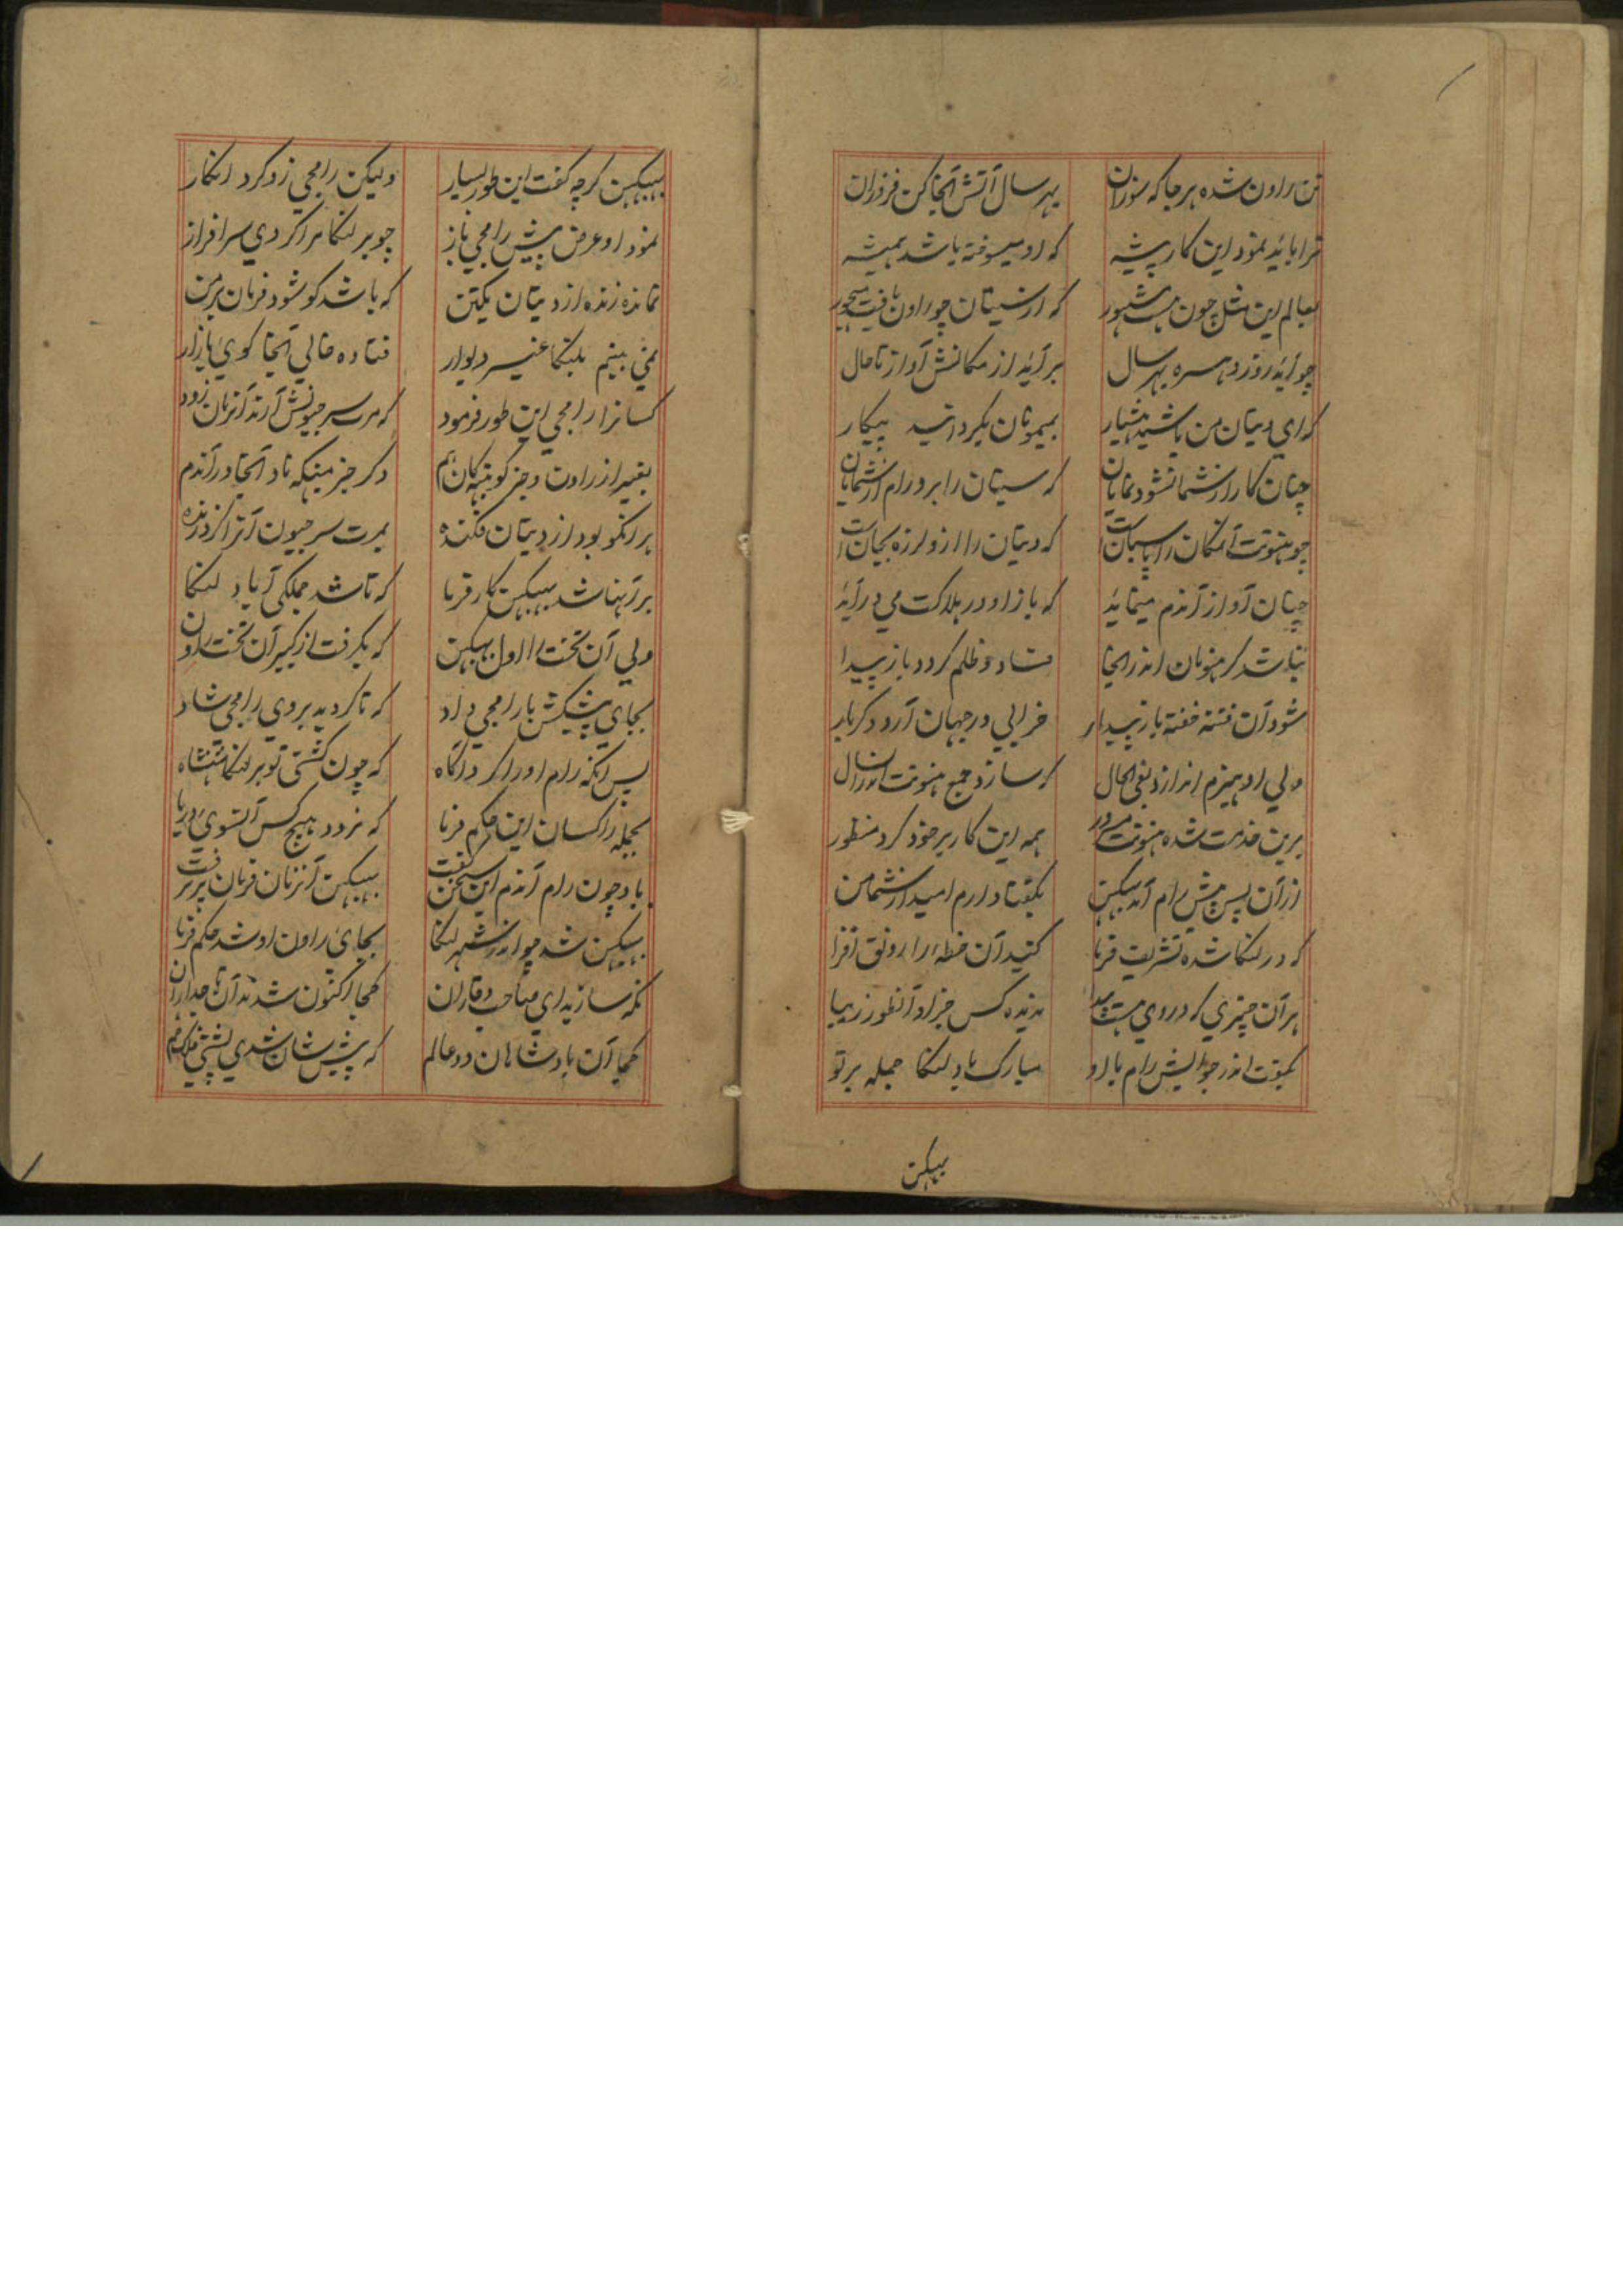 تن راون شده هر جا که سوزان بهر سال آتش آنجا کن فروزان
ترا باید نمود این کار پیشه که او میسوخته باشد همیشه
بعالم این مثل چون هست مشهور که از سیتان چو راون یافت
چو آید روز دوسره بهر سال بر آید از مکانش آواز تا حال
که ای دیتان من باشید هشیار بمیمونان بکردانید پیکار
چنان کار از شما نشود نمایان که سیتان را برد رام از شمایان
چو هنونت آنمکان را پاسبان است که دیتان را ازو لرزه بجان است
چنان آواز آندم مینماید که باز او در هلاکت می در آید
نباشد کر هنومان اندر انجا فساد و ظلم کردد باز پیدا
شود آن فتنه خفته باز بیدار خرابی در جهان آرد دکر بار
ولی او هیزم اندازد بفی الحال که سازد جمع هنونت اندران سال
برین خدمت شده هنونت مامور همه این کار بر خود کرد منظور
از آن پس پیش رام آمد ببیکن بکفتا دارم امید از شما من
که در لنکا شده تشریف فرما کنید آن خطه را رونق افزا
بر آن چیزی که در وی هست ندیده کس جز او آنطور زیبا
بکفت اندر جوابش رام با او مبارک باد لنکا جمله بر تو
ببیکن
ببیکن کرچه کفت این طور بسیار ولیکن رامجی زو کرد انکار
نمود او عرض پیش رامجی باز چو بر لنکا مرا کردی سرافراز
نمانده زنده از دیتان یکتن که باشد کو شود فرمان بر من
نمی بینم بلنکا غیر دیوار فتاده خالی آنجا کوی بازار
کسانرا رامجی این طور فرمود که امرت سر جیونش آرند آنزمان زود
بغیر از راون و جز کونبهکان هم دکر جز میکهه ناد آنجا در آندم
هر آنکو بود از دیتان فکنده بمرت سر جیون آنرا کرد زنده
بر آنها شد ببیکن کارفرما که تا شد جملکی آباد لنکا
ولی آن تخت را اول ببیکن که بکرفت از کبیر آن تخت راون
بجای پیشکش با رامجی داد که تا کردید بر وی رامجی شاد
پس آنکه رام او را کرد آکاه که چون کشتی تو بر لنکا شهنشاه
بجمله راکسان این حکم فرما که نرود هیچ کس آنسوی دریا
باو چون رام آندم این سخن کفت ببیکن آنزمان فرمان پذیرفت
ببیکن شد چو اندر شهر لنکا بجای راون او شد حکم فرما
نکه سازید ای صاحب وقاران کجا اکنون شدند آن تاجداران
کجا آن بادشاهان دو عالم که پیش شان شدی پشت فلک خم